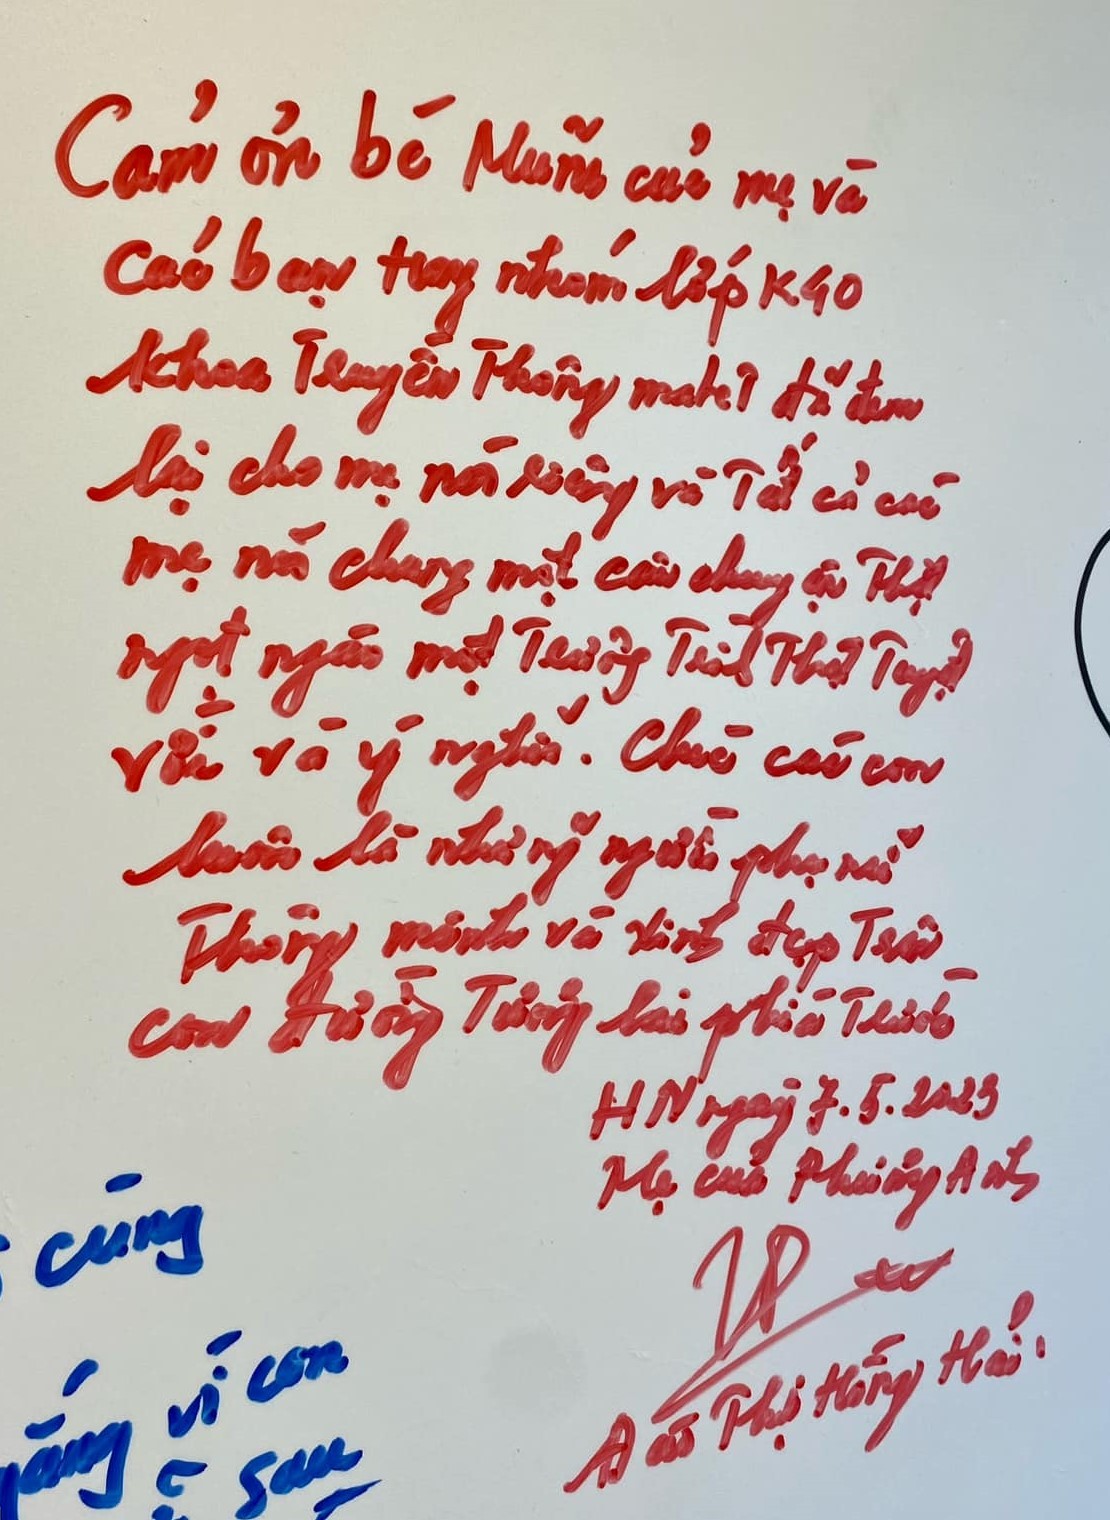 Cảm ơn bé Mũm của mẹ và
Các bạn trong nhóm lớp K40
Khoa Truyền Thông đã đem
lại cho mẹ nói riêng và Tất cả các
mẹ nói chung một câu chuyện Thật
ngọt ngào một Trương Trình Thật Tuyệt
vời và ý nghĩa. Chúc các con
luôn là những người phụ nữ
Thông minh và xinh đẹp Trên
con đường Tương lai phía Trước
HN ngày 7.5.2023
Mẹ của Phương Anh
Thị Hồng Hải
cùng
vì con
sau